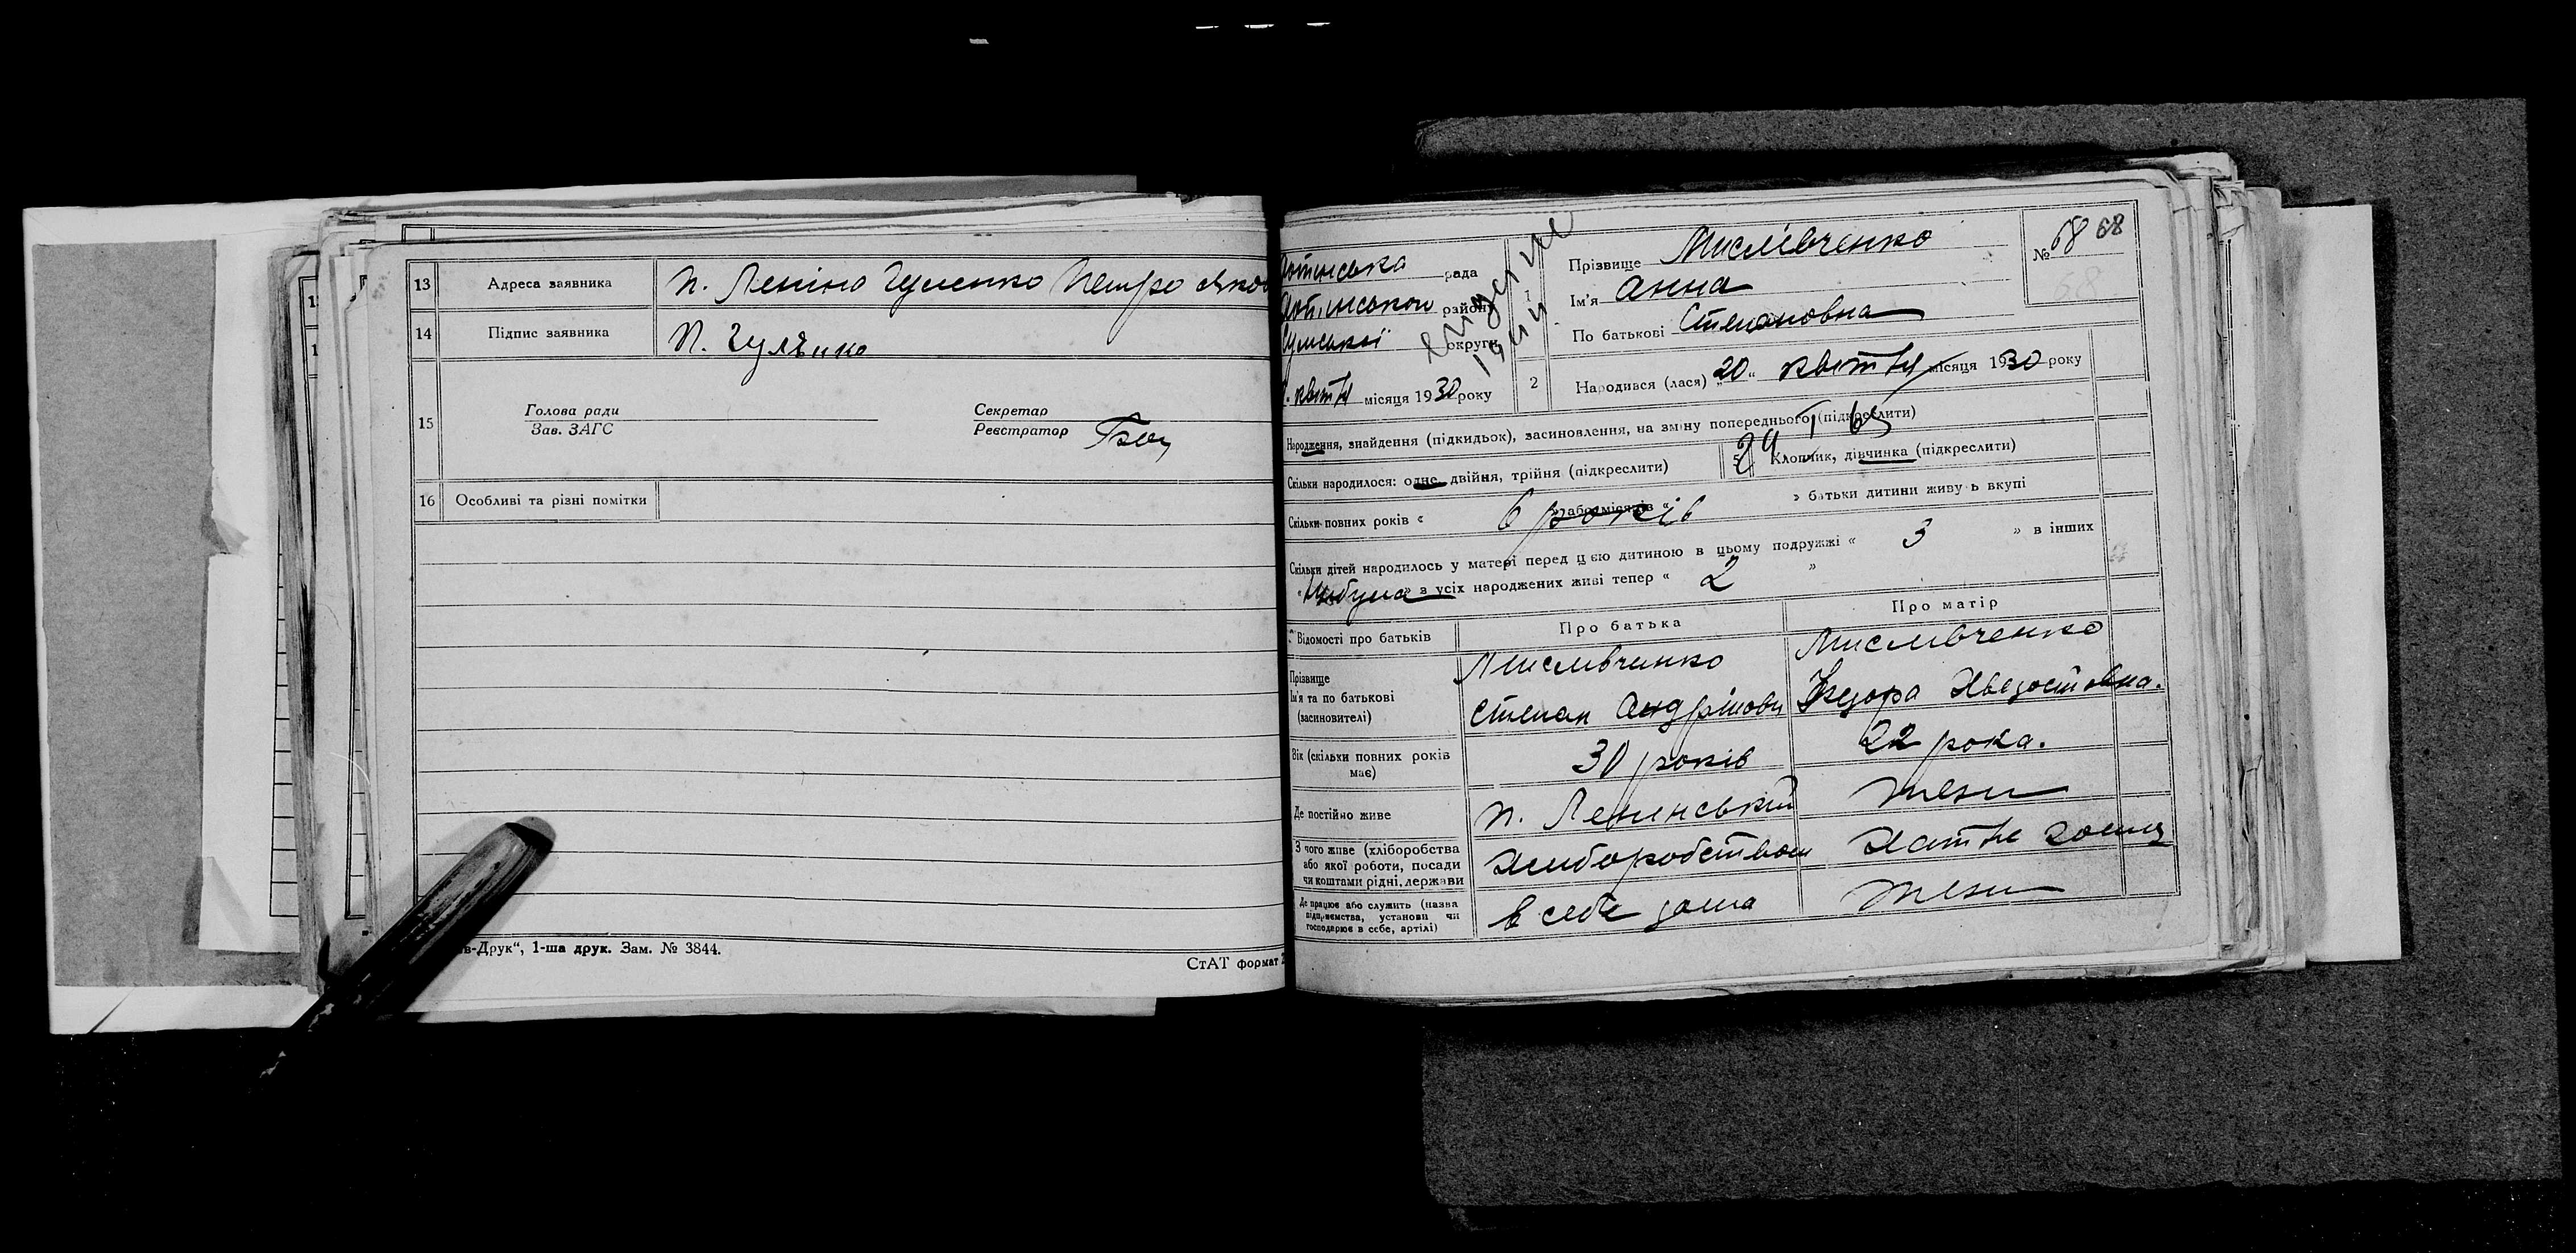 13 Адреса заявника п. Леніно Гуленко Петро
14 Підпис заявника П. Гуленко
15 Голова ради
Зав. ЗАГС
Секретар
Реєстратор
16 Особливі та різні помітки
в-Друк“, 1-ша друк. Зам. № 3844.
СтАТ формат
рада
району
Сумської округи
квітня місяця 1930 року
Прізвище Мислівченко
№ 68 68
Ім'я Анна
По батькові Степановна
2 Народився (лася) „20“ квітня місяця 1930 року
Народження, знайдення (підкидьок), засиновлення, на зміну попереднього (підкреслити)
24 I 65
Скільки народилося: одне, двійня, трійня (підкреслити)
5 Хлопчик, дівчинка (підкреслити)
Скільки повних років « 6 років або місяців « » батьки дитини живуть вкупі
Скільки дітей народилось у матері перед цією дитиною в цьому подружжі « 3 » в інших
« » з усіх народжених живі тепер « 2 »
Відомості про батьків
Про батька
Про матір
Прізвище
Ім'я та по батькові
(засиновителі)
Мисливченко
Степан Андрійович
Мисливченко
Федора
Вік (скільки повних років має)
30 років
22 рока.
Де постійно живе
п. Ленинський
тези
З чого живе (хліборобства
або якої роботи, посади
чи коштами рідні, держави
хліборобством
Хатне
Де працює або служить (назва
підприємства, установи чи
господарює в себе, артілі)
в себе дома
тези